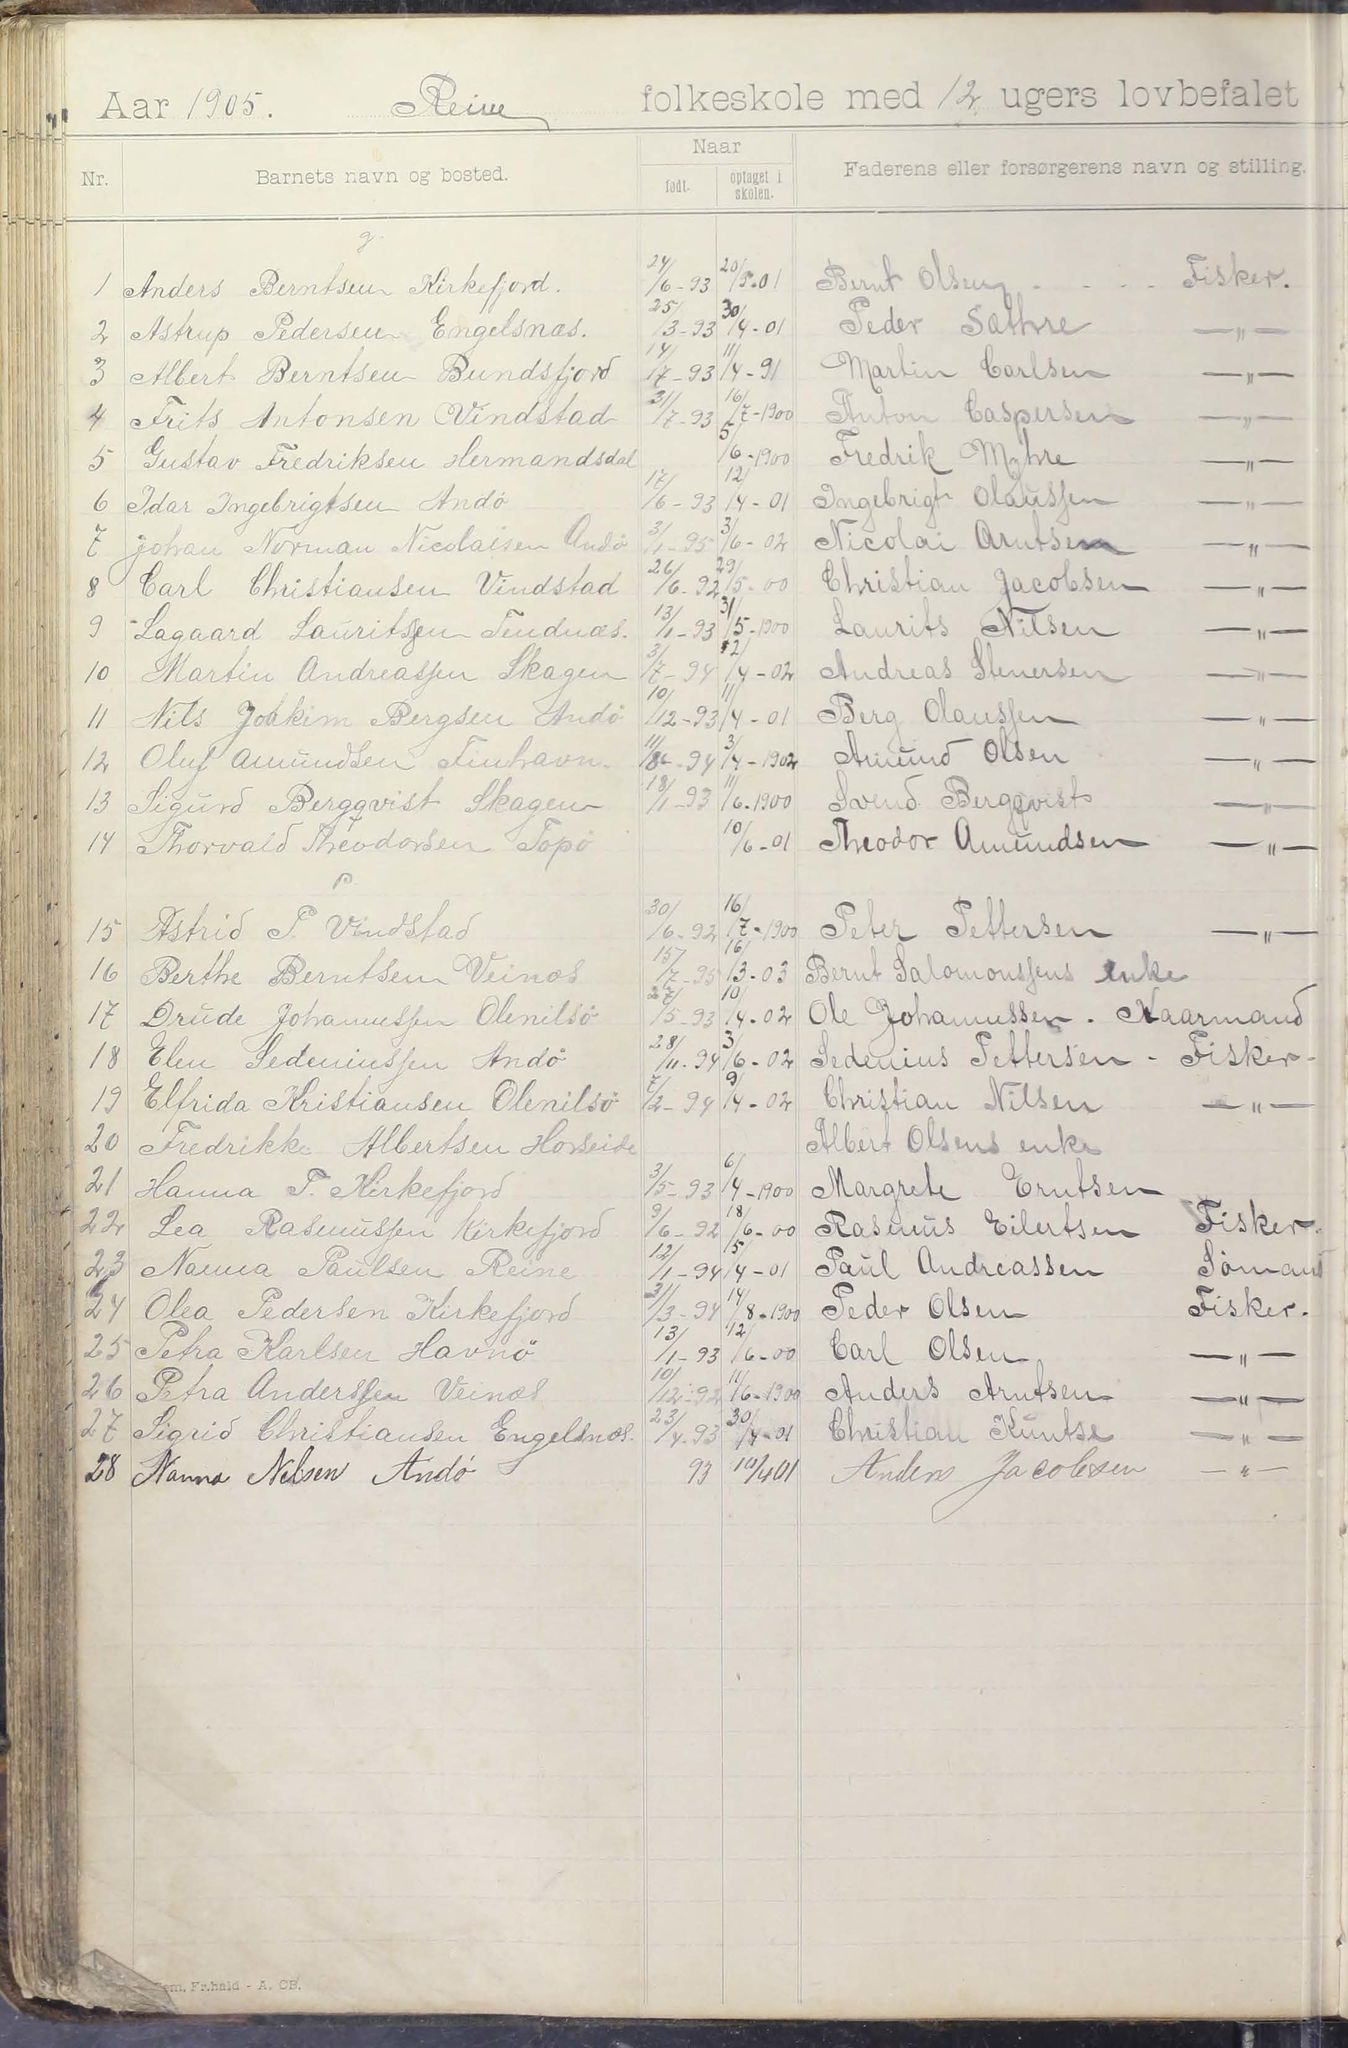 Aar 1905. Reine folkeskole med 12 ugers lovbefalet
Nr. Barnets navn og bosted. Naar Faderens eller forsørgerens navn og stilling.
født. optaget i skolen.
g.
1 Anders Berntsen Kirkefjord. 24/6-93 20/5-01 Bernt Olsen - - - Fisker.
2 Astrup Pedersen Engelsnæs. 25/3-93 30/4-01 Peder Sathre —"—
3 Albert Berntsen Bundsfjord 14/7-93 11/4-91 Martin Carlsen —"—
4 Frits Antonsen Vindstad 31/7-93 16/7-1900 Anton Caspersen —"—
5 Gustav Fredriksen Hermandsdal 5/6-1900 Fredrik Myhre —"—
6 Idar Ingebrigtsen Andö 17/6-93 12/4-01 Ingebrigt Olaussen —"—
7 Johan Norman Nicolaisen Andö 3/1-95 3/6-02 Nicolai Arntsen —"—
8 Carl Christiansen Vindstad 26/6-92 29/5-00 Christian Jacobsen —"—
9 Lagaard Lauritssen Tendnæs. 13/1-93 31/5-1900 Laurits Nilsen —"—
10 Martin Andreassen Skagen 3/7-94 2/4-02 Andreas Stenersen —"—
11 Nils Joakim Bergsen Andö 10/12-93 11/4-01 Berg Olaussen —"—
12 Oluf Amundsen Finhavn. 11/8-94 3/4-1902 Amund Olsen —"—
13 Sigurd Bergqvist Skagen 18/1-93 11/6-1900 Svend Bergqvist —"—
14 Thorvald Theodorsen Topö 10/6-01 Theodor Amundsen —"—
p.
15 Astrid P. Vindstad 30/6-92 16/7-1900 Peter Pettersen —"—
16 Berthe Berntsen Veinæs 15/7-95 16/3-03 Bernt Salomonssens enke
17 Drude Johanussen Olenilsö 27/5-93 10/4-02 Ole Johanussen. Naarmand
18 Elen Sedeniussen Andö 28/11-94 3/6-02 Sedenius Pettersen - Fisker-
19 Elfrida Kristiansen Olenilsö 7/2-94 9/4-02 Christian Nilsen —"—
20 Fredrikke Albertsen Horseide Albert Olsens enke
21 Hanna P. Kirkefjord 3/5-93 6/4-1900 Margrete Erntsen
22 Lea Rasmussen Kirkefjord 9/6-92 18/6-00 Rasmus Eilertsen Fisker.
23 Nanna Paulsen Reine 12/1-94 5/4-01 Paul Andreassen Sömand
24 Olea Pedersen Kirkefjord 31/3-94 14/8-1900 Peder Olsen Fisker.
25 Petra Karlsen Havnö 13/1-93 12/6-00 Carl Olsen —"—
26 Petra Anderssen Veinæs 10/12-92 11/6-1900 Anders Arntsen —"—
27 Sigrid Christiansen Engelsnæs. 23/4-93 30/4-01 Christian Kuntse —"—
28 Nanna Nelsen Andö 93 10/4 01 Anders Jacobsen —"—
Fr.hald - A. CB.